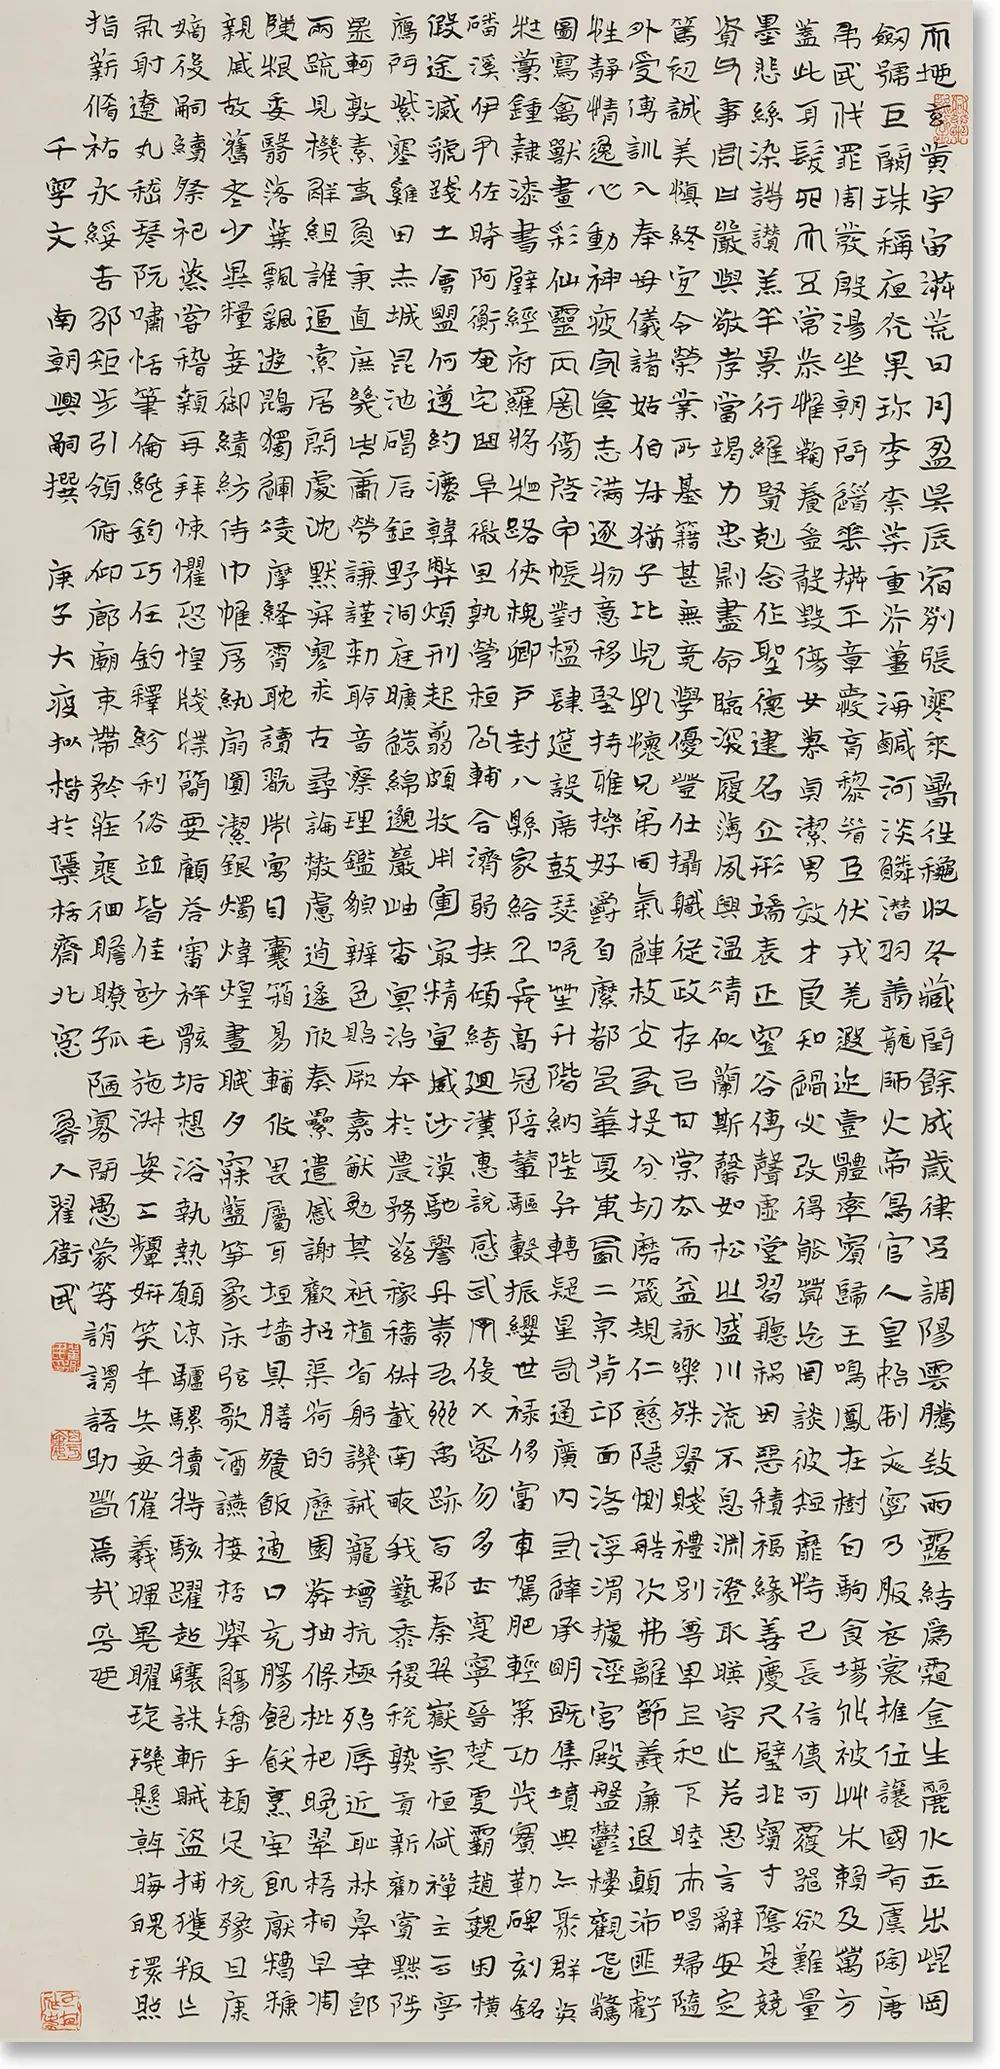 天地玄黄宇宙洪荒日月盈昃辰宿列張寒來暑往秋收冬藏閏餘成歲律呂調陽雲騰致雨露結為霜金生麗水玉出崐岡
劍號巨闕珠稱夜光果珍李柰菜重芥薑海鹹河淡鱗潛羽翔龍師火帝鳥官人皇始制文字乃服衣裳推位讓國有虞陶唐
弔民伐罪周發殷湯坐朝問道垂拱平章愛育黎首臣伏戎羌遐迩壹體率賓歸王鳴鳳在樹白駒食場化被艸木賴及萬方
蓋此身髮四大五常恭惟鞠養豈敢毀傷女慕貞潔男效才良知過必改得能莫忘罔談彼短靡恃己長信使可覆器欲難量
墨悲絲染詩讚羔羊景行維賢剋念作聖德建名立形端表正空谷傳聲虛堂習聽禍因惡積福緣善慶尺璧非寶寸陰是競
資父事君曰嚴與敬孝當竭力忠則盡命臨深履薄夙興溫凊似蘭斯馨如松之盛川流不息淵澄取映容止若思言辭安定
篤初誠美慎終宜令榮業所基籍甚無竟學優登仕攝職從政存以甘棠去而益詠樂殊貴賤禮別尊卑上和下睦夫唱婦隨
外受傅訓入奉母儀諸姑伯叔猶子比兒孔懷兄弟同氣連枝交友投分切磨箴規仁慈隱惻造次弗離節義廉退顛沛匪虧
性靜情逸心動神疲守真志滿逐物意移堅持雅操好爵自縻都邑華夏東西二京背邙面洛浮渭據涇宮殿盤鬱樓觀飛驚
圖寫禽獸畫彩仙靈丙舍傍啓甲帳對楹肆筵設席鼓瑟吹笙升階納陛弁轉疑星右通廣內左達承明既集墳典亦聚群英
杜稾鍾隸漆書壁經府羅將相路俠槐卿戶封八縣家給千兵高冠陪輦驅轂振纓世祿侈富車駕肥輕策功茂實勒碑刻銘
磻溪伊尹佐時阿衡奄宅曲阜微旦孰營桓公輔合濟弱扶傾綺迴漢惠說感武丁俊乂密勿多士寔寧晉楚更霸趙魏困橫
假途滅虢踐土會盟何遵約法韓弊煩刑起翦頗牧用軍最精宣威沙漠馳譽丹青九州禹跡百郡秦并嶽宗恒岱禪主云亭
鴈門紫塞雞田赤城昆池碣石鉅野洞庭曠遠綿邈巖岫杳冥治本於農務茲稼穡俶載南畝我藝黍稷稅熟貢新勸賞黜陟
孟軻敦素史魚秉直庶幾中庸勞謙謹勑聆音察理鑑貌辨色貽厥嘉猷勉其祗植省躬譏誡寵增抗極殆辱近恥林皋幸即
兩疏見機解組誰逼索居閑處沈默寂寥求古尋論散慮逍遙欣奏累遣慼謝歡招渠荷的歷園莽抽條枇杷晚翠梧桐早凋
陳根委翳落葉飄颻遊鵾獨運凌摩絳霄耽讀翫市寓目囊箱易輶攸畏屬耳垣墻具膳飡飯適口充腸飽飫烹宰飢厭糟糠
親戚故舊老少異糧妾御績紡侍巾帷房紈扇圓潔銀燭煒煌晝眠夕寐藍笋象床弦歌酒讌接杯舉觴矯手頓足悅豫且康
嫡後嗣續祭祀蒸嘗稽顙再拜悚懼恐惶牋牒簡要顧答審詳骸垢想浴執熱願涼驢騾犢特駭躍超驤誅斬賊盜捕獲叛亡
布射遼丸嵇琴阮嘯恬筆倫紙鈞巧任釣釋紛利俗並皆佳妙毛施淑姿工顰妍笑年矢每催羲暉晃曜璇璣懸斡晦魄環照
指薪脩祜永綏吉邵矩步引領俯仰廊廟束帶矜莊裵徊瞻瞭孤陋寡聞愚蒙等誚謂語助者焉哉乎也
千字文 南朝興嗣撰 庚子大疫拟楷於櫽栝齋北窓 魯人翟衛民